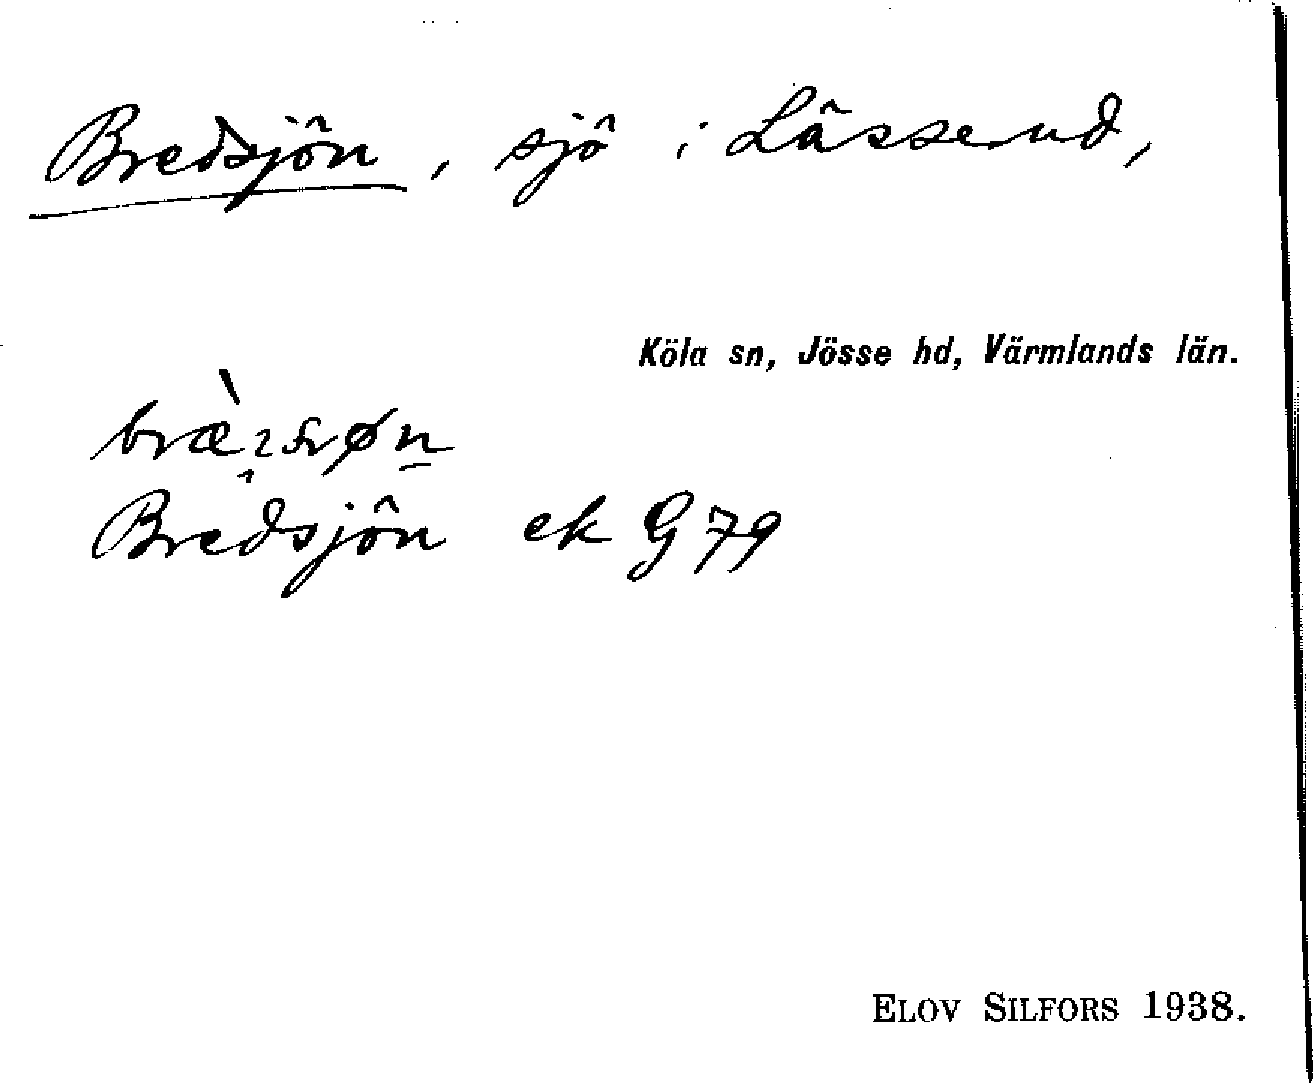 Bredsjön, sjö i Lässerud,
Köla sn, Jösse hd, Värmlands län.
Bredsjön ek G 79
ELOV SILFORS 1938.